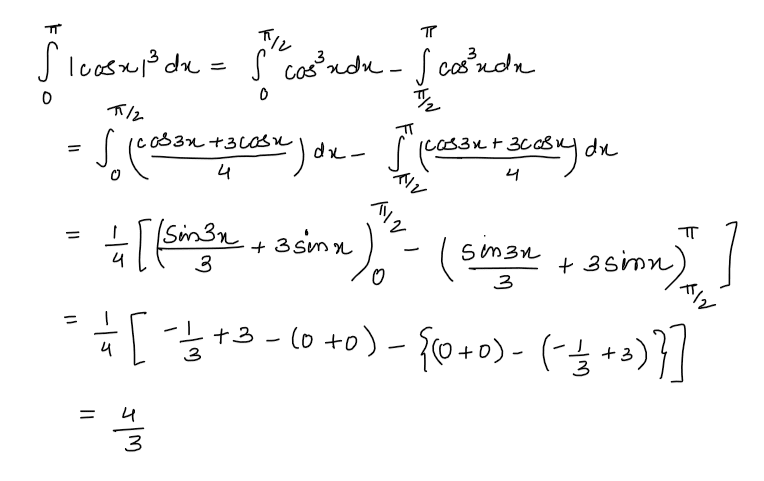 ∫₀^π |cosx|³ dx = ∫₀^{π/2} cos³xdx − ∫_{π/2}^π cos³xdx
= ∫₀^{π/2} ((cos3x + 3cosx)/4) dx − ∫_{π/2}^π ((cos3x + 3cosx)/4) dx
= 1/4 [(sin3x/3 + 3sinx)₀^{π/2} − (sin3x/3 + 3sinx)_{π/2}^π]
= 1/4 [−1/3 + 3 − (0 + 0) − {(0 + 0) − (−1/3 + 3)}]
= 4/3